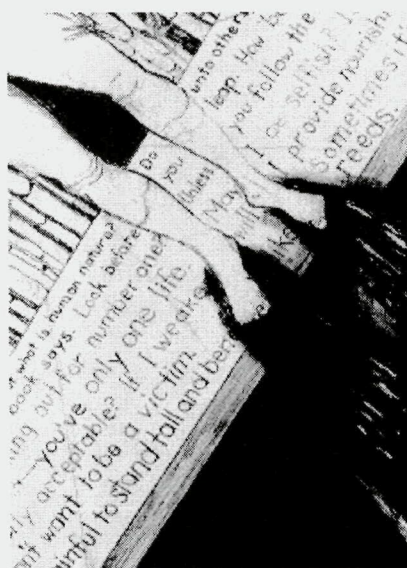 what is human nature?
book says. Look before
ing out for number one
—you've only one life.
acceptable? If I we are
n't want to be a victim.
ainful to stand tall and ben
Do
you
Unless
May
unto others
leap. How be
you follow the
I be selfish? I
provide nourish
Sometimes it
needs.